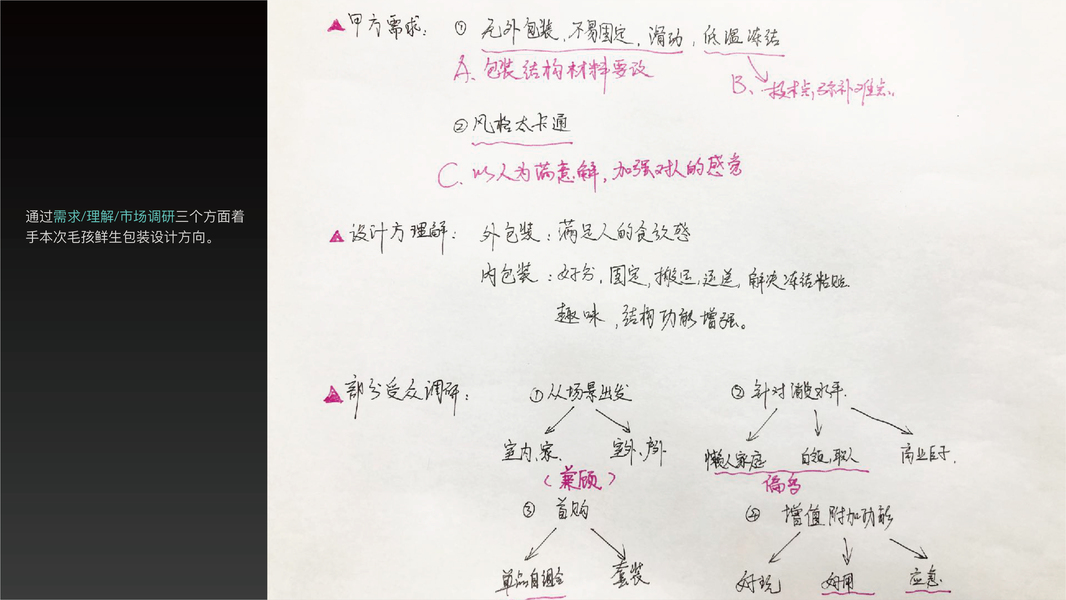 通过需求/理解/市场调研三个方面着
手本次毛孩鲜生包装设计方向。
甲方需求: ① 无外包装、不易固定,滑动,低温冻结
A、包装结构材料要改
B、技术点,弥补难点。
②风格太卡通
C. 以人为满意解,加强对人的感觉
设计方理解: 外包装:满足人的食欲感
内包装:好分,固定,搬运,还送,解决冻结粘贴
趣味,结构功能增强。
部分受众调研: ①从场景出发 ② 针对消费水平.
室内、家、 室外、户外 懒人家庭 白领,职人 商业巨子.
(兼顾) 偏多
③ 首购 ④ 增值附加功能
单品自组合 套装 好玩 好用 应急.